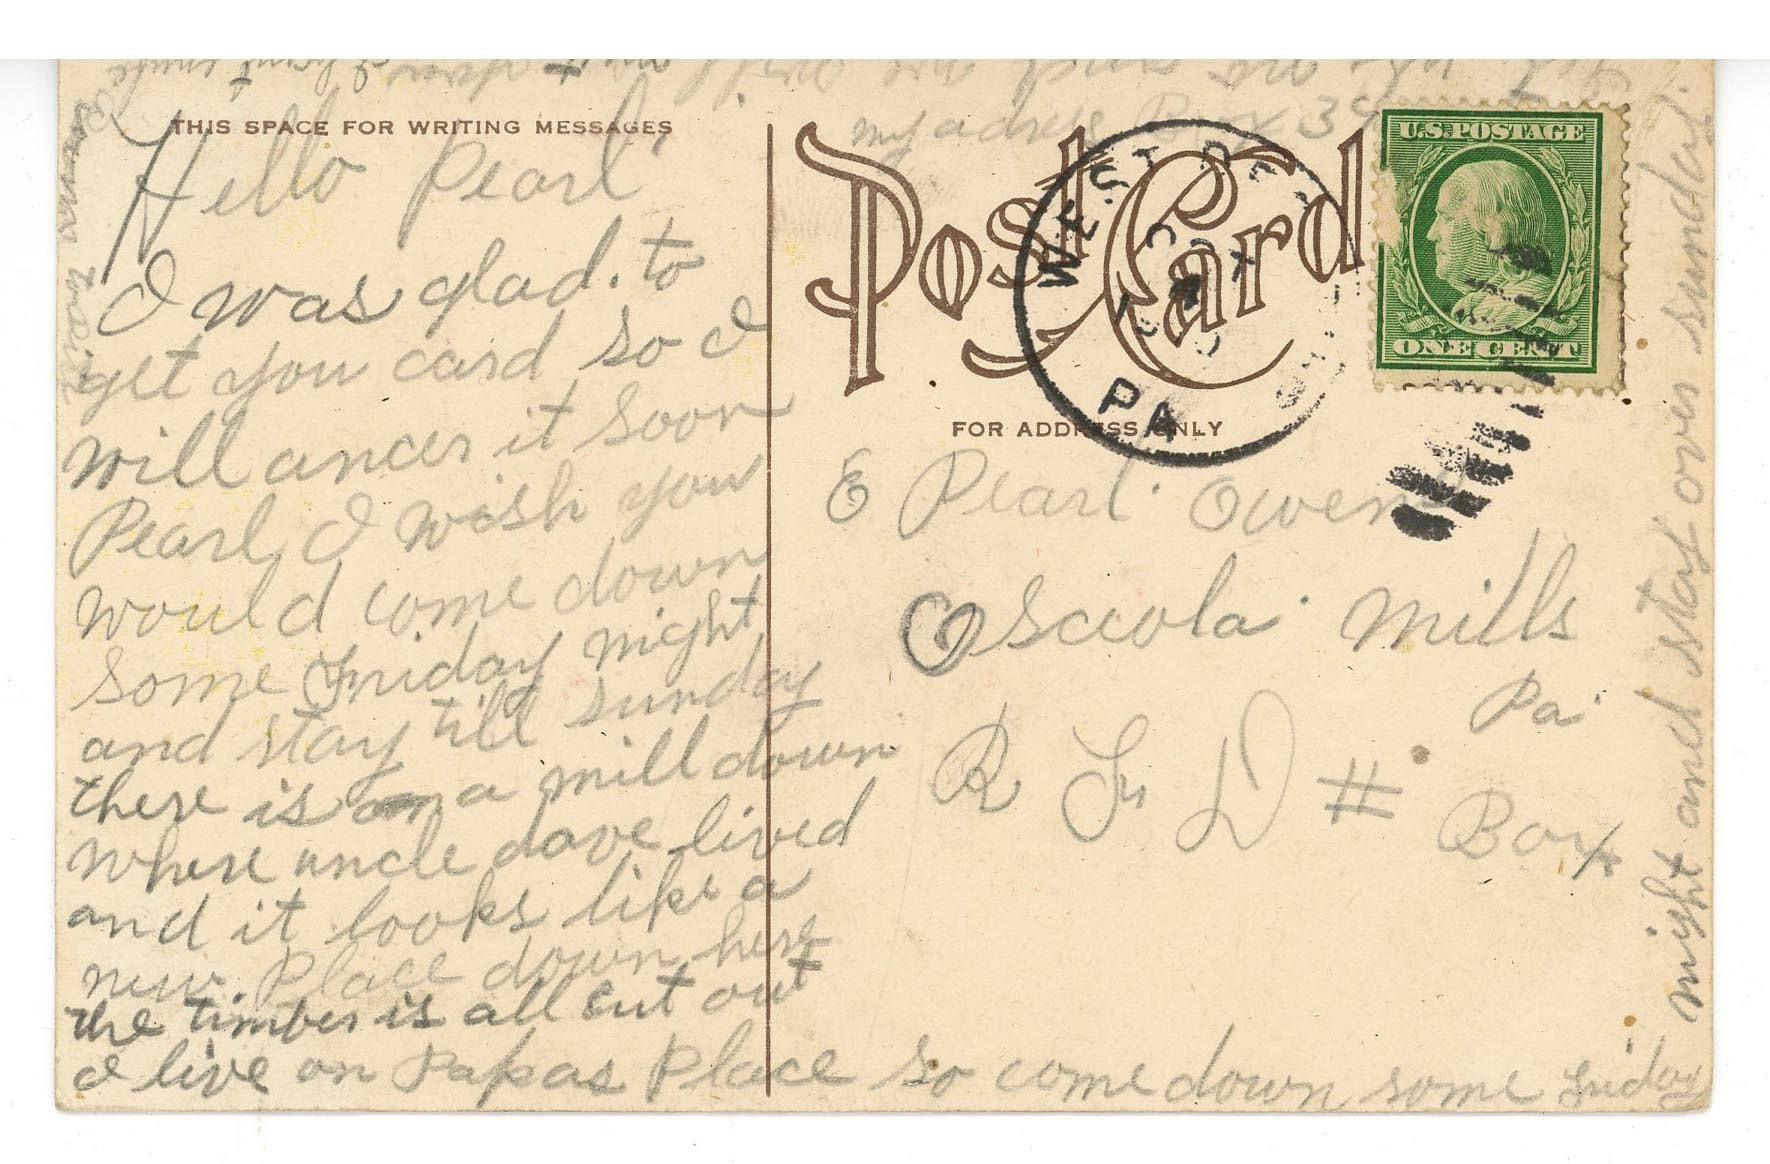 THIS SPACE FOR WRITING MESSAGES
Hello Pearl
I was glad. to
get you card so I
will ancer it soon
Pearl I wish you
would come down
some Friday night
and stay till sunday
there is a mill down
where uncle dave lived
and it looks like a
new Place down here
the timber is all cut out
I live on Papas Place so come down some friday
night and stay over sunday.
my adress Box 39
Post Card
U.S. POSTAGE
ONE CENT
WEST
PA
FOR ADDRESS ONLY
E Pearl. Owens
Osceola. Mills
Pa.
R F D #
Box